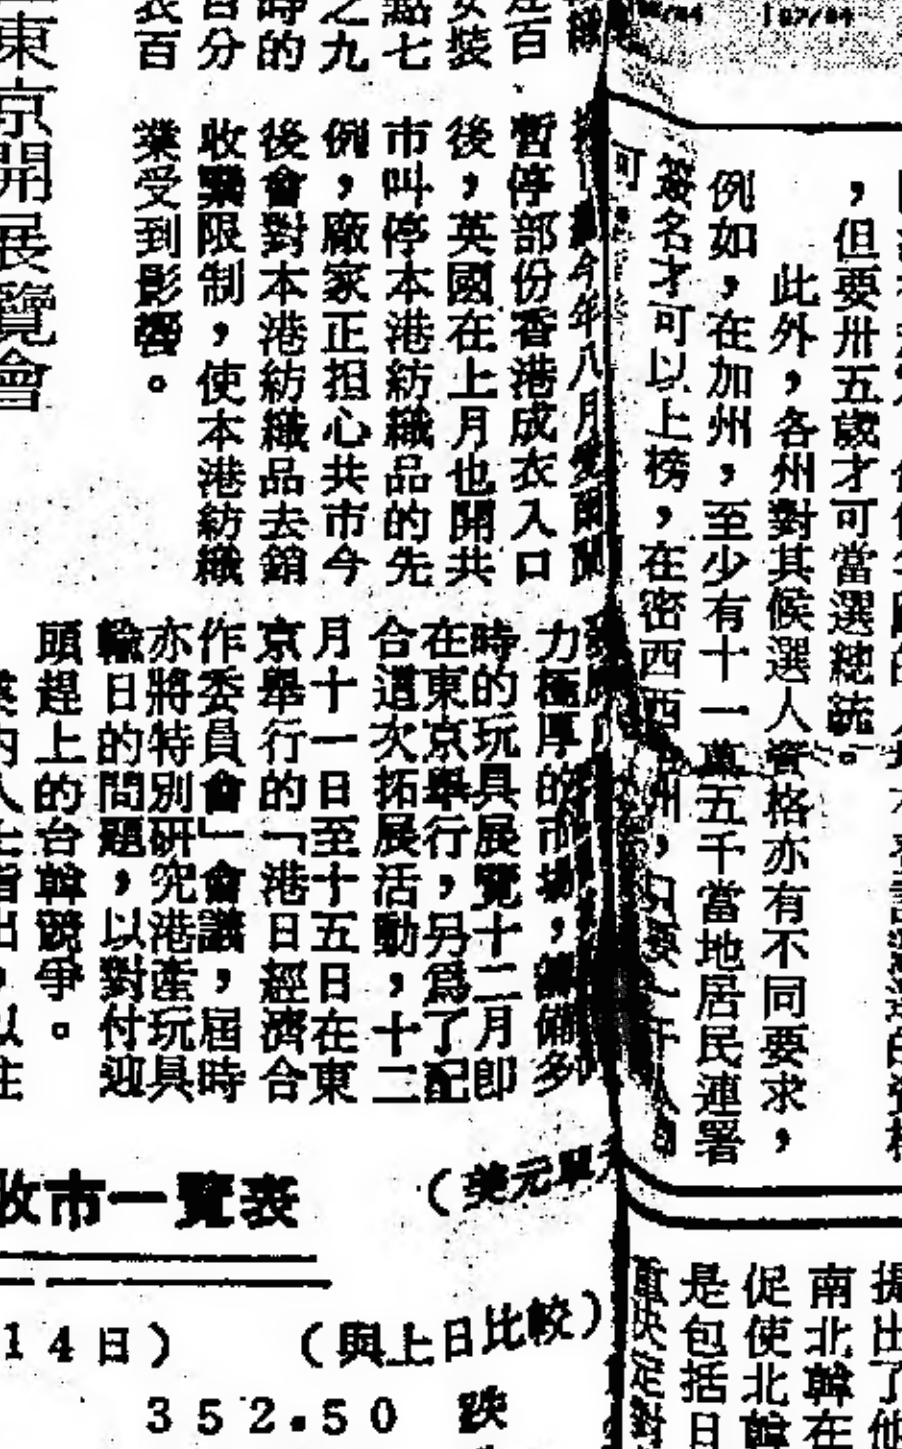 ，但要卅五歲才可當選總統。
此外，各州對其候選人資格亦有不同要求，
例如，在加州，至少有十一萬五千當地居民連署
簽名才可以上榜，在密西西
可
百
女裝
點七
之九
時的
百分
衣百
今年八月愛爾蘭
暫停部份香港成衣入口
後，英國在上月也開共
市叫停本港紡織品的先
例，廠家正担心共市今
後會對本港紡織品去銷
收緊限制，使本港紡織
業受到影響。
東京開展覽會
力極厚的市場，籌備多
時的玩具展覽十二月即
在東京舉行，另爲了配
合這次拓展活動，十二
月十一日至十五日在東
京舉行的「港日經濟合
作委員會」會議，屆時
亦將特別研究港產玩具
輸日的問題，以對付迎
頭趕上的台韓競爭。
內人士指出，以往
收市一覽表 （美元單
14日） （與上日比較）
352.50 跌
提出了他
南北韓在
促使北韓
是包括日
重決定對